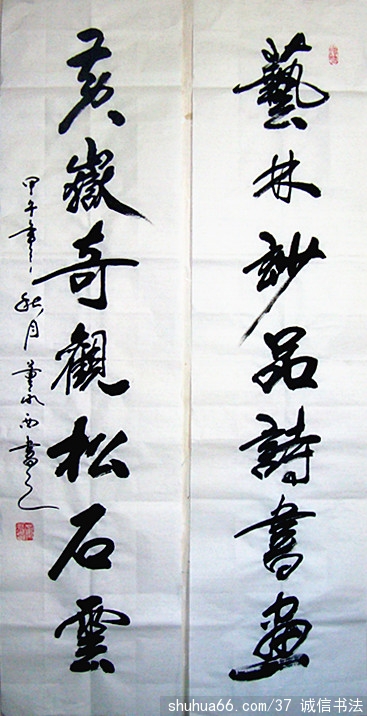 藝林妙品詩書畫
黃嶽奇觀松石雲
甲午年秋月董永西書之
shuhua66.com/37 诚信书法